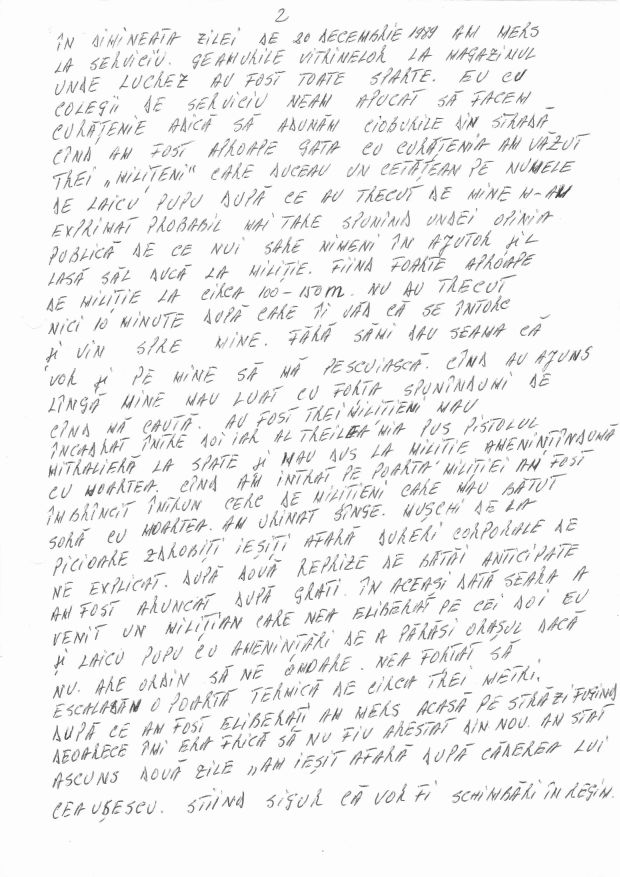 2
ÎN DIMINEAȚA ZILEI DE 20 DECEMBRIE 1989 AM MERS
LA SERVICIU. GEAMURILE VITRINELOR LA MAGAZINUL
UNDE LUCREZ AU FOST TOATE SPARTE. EU CU
COLEGII DE SERVICIU NEAM APUCAT SĂ FACEM
CURĂȚENIE ADICĂ SĂ ADUNĂM CIOBURILE DIN STRADĂ
CÎND AM FOST APROAPE GATA CU CURĂȚENIA AM VĂZUT
TREI „MILIȚENI" CARE DUCEAU UN CETĂȚEAN PE NUMELE
DE LAICU PUPU DUPĂ CE AU TRECUT DE MINE M-AM
EXPRIMAT PROBABIL MAI TARE SPUNIND UNDEI OPINIA
PUBLICĂ DE CE NUI SARE NIMENI ÎN AJUTOR ȘI'L
LASĂ SĂL DUCĂ LA MILIȚIE. FIIND FOARTE APROAPE
DE MILIȚIE LA CIRCA 100-150m. NU AU TRECUT
NICI 10 MINUTE DUPĂ CARE ÎI VĂD CĂ SE ÎNTORC
ȘI VIN SPRE MINE. FĂRĂ SĂMI DAU SEAMA CĂ
VOR ȘI PE MINE SĂ MĂ PESCUIASCĂ. CÎND AU AJUNS
LÎNGĂ MINE MAU LUAT CU FORȚA SPUNÎNDUMI DE
CÎND MĂ CAUTĂ. AU FOST TREI MILITIENI MAU
ÎNCADRAT ÎNTRE DOI IAR AL TREILEA MIA PUS PISTOLUL
MITRALIERĂ LA SPATE ȘI MAU DUS LA MILITIE AMENINȚÎNDUMĂ
CU MOARTEA. CÎND AM INTRAT PE POARTA MILIȚIEI AM FOST
ÎMBRÎNCIT ÎNTRUN CERC DE MILITIENI CARE MAU BĂTUT
SORĂ CU MOARTEA. AM URINAT SÎNGE. MUȘCHI DE LA
PICIOARE ZDROBIȚI IEȘIȚI AFARĂ DURERI CORPORALE DE
NE EXPLICAT. DUPĂ DOUĂ REPRIZE DE BĂTĂI ANTICIPATE
AM FOST ARUNCAT DUPĂ GRATI. ÎN ACEAȘI DATĂ SEARA A
VENIT UN MILIȚIAN CARE NEA ELIBERAT PE CEI DOI EU
ȘI LAICU PUPU CU AMENINȚĂRI DE A PĂRĂSI ORAȘUL DACĂ
NU. ARE ORDIN SĂ NE OMOARE. NEA FORȚAT SĂ
ESCALADĂM O POARTĂ TERMICĂ DE CIRCA TREI METRI.
DUPĂ CE AM FOST ELIBERAȚI AM MERS ACASĂ PE STRĂZI FUGIND
DEOARECE ÎMI ERA FRICĂ SĂ NU FIU ARESTAT DIN NOU. AM STAT
ASCUNS DOUĂ ZILE „AM IEȘIT AFARĂ DUPĂ CĂDEREA LUI
CEAUȘESCU. STIIND SIGUR CĂ VOR FI SCHIMBĂRI ÎN REGIM.